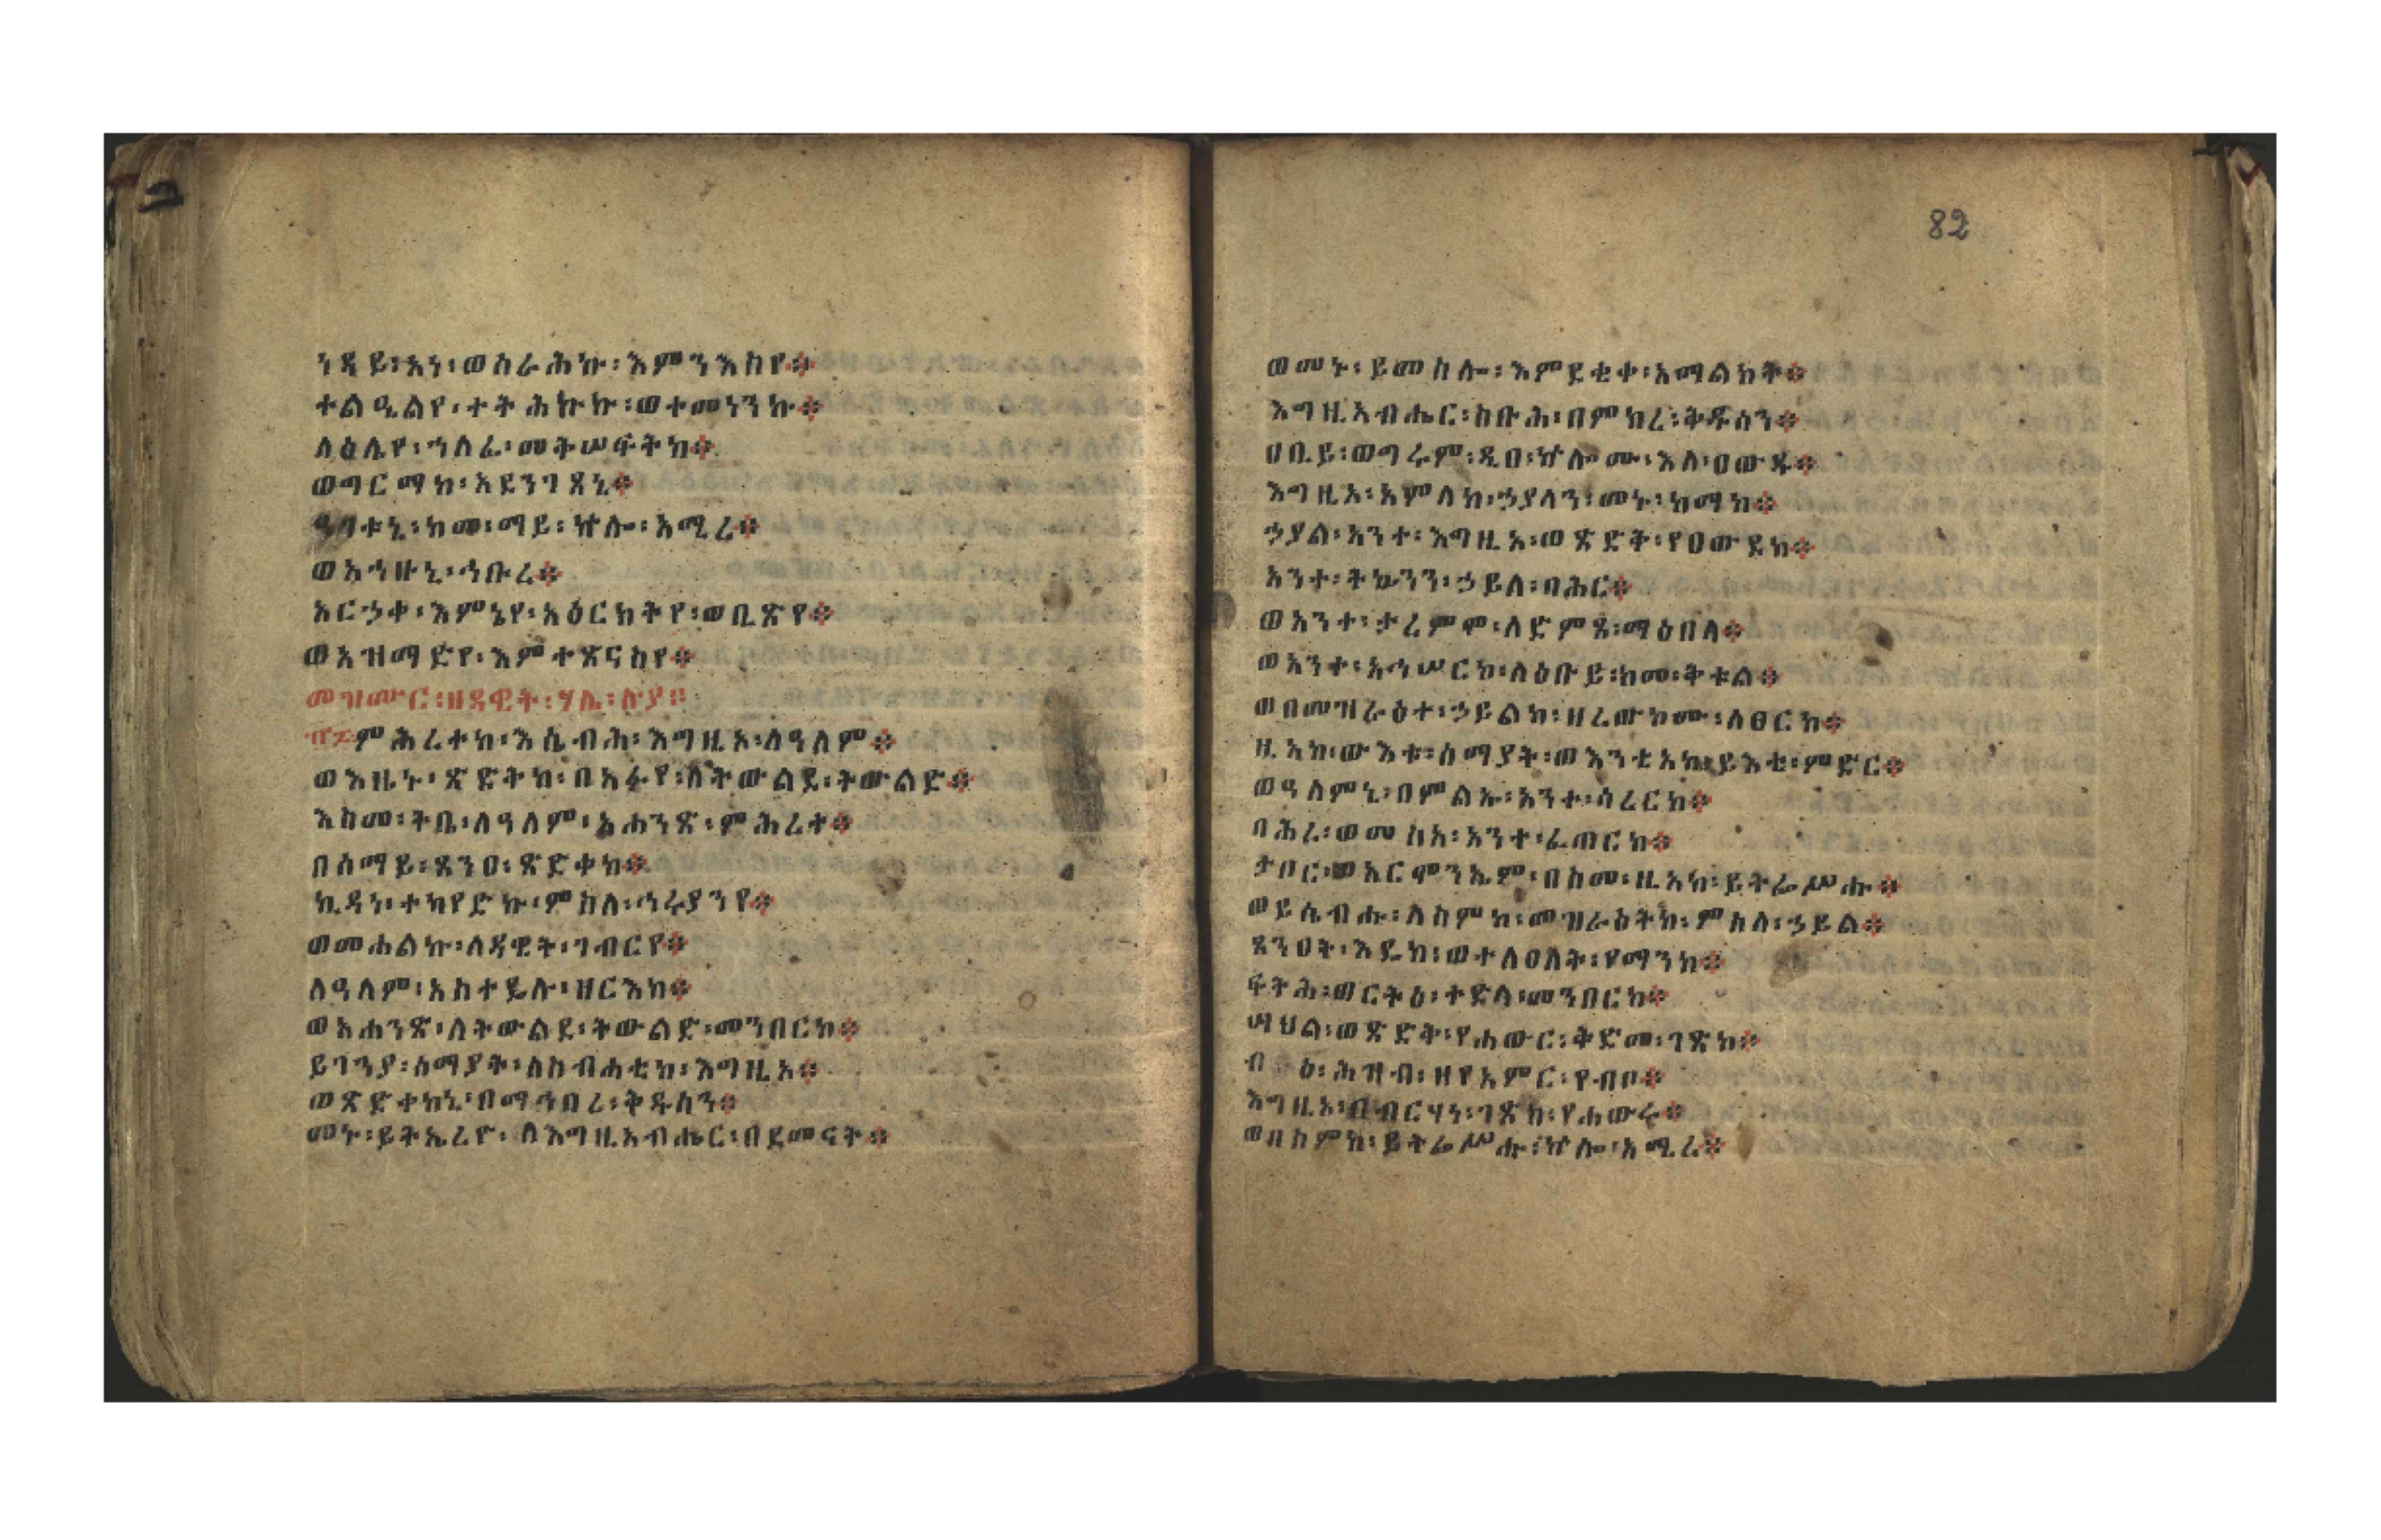 ነዳይ፡አነ፡ወስራሕኩ፡እምንእስየ፨
ተልዒልየ፡ተትሕኩኩ፡ወተመነንኩ፨
ላዕሌየ፡ኀለፈ፡መትሠፍትከ፨
ወግርማከ፡አደንገጸኒ፨
ዓገቱኒ፡ከመ፡ማይ፡ኵሎ፡አሚረ፨
ወአኀዙኒ፡ኅቡረ፨
አርኃቀ፡እምኔየ፡አዕርክትየ፡ወቢጽየ፨
ወአዝማድየ፡እምተጽናስየ፨
መዝሙር፡ዘዳዊት፡ሃሌ፡ሉያ፨
፹፰ምሕረተከ፡እሴብሕ፡እግዚኦ፡ለዓለም፨
ወእዜኑ፡ጽድትከ፡በአፉየ፡ለትውልደ፡ትውልድ፨
እስመ፡ትቤ፡ለዓለም፡አሐንጽ፡ምሕረተ፨
በሰማይ፡ጸንዐ፡ጽድቀከ፨
ኪዳነ፡ተካየድኩ፡ምስለ፡ኅሩያንየ፨
ወመሐልኩ፡ለዳዊት፡ገብርየ፨
ለዓለም፡አስተዴሉ፡ዘርእከ፨
ወአሐንጽ፡ለትውልደ፡ትውልድ፡መንበርከ፨
ይገንያ፡ሰማያት፡ለስብሐቲከ፡እግዚኦ፨
ወጽድቀከኒ፡በማኅበረ፡ቅዱሳን፨
መኑ፡ይትኤረዮ፡ለእግዚአብሔር፡በደመናት፨
82
ወመኑ፡ይመስሎ፡እምደቂቀ፡አማልክት፨
እግዚአብሔር፡ስቡሕ፡በምክረ፡ቅዱሳን፨
ዐቢይ፡ወግሩም፡ዲበ፡ኵሎሙ፡እለ፡ዐውዱ፨
እግዚኦ፡አምላከ፡ኃያላን፡መኑ፡ከማከ፨
ኃያል፡አንተ፡እግዚኦ፡ወጽድቅ፡የዐውደከ፨
አንተ፡ትኴንን፡ኃይለ፡ባሕር፨
ወአንተ፡ታረምሞ፡ለድምፀ፡ማዕበላ፨
ወአንተ፡አኅሠርኮ፡ለዕቡይ፡ከመ፡ቅቱል፨
ወበመዝራዕተ፡ኃይልከ፡ዘረውኮሙ፡ለፀርከ፨
ዚአከ፡ውእቱ፡ሰማያት፡ወእንቲአከ፡ይእቲ፡ምድር፨
ወዓለምኒ፡በምልኡ፡አንተ፡ሳረርከ፨
ባሕረ፡ወመስዐ፡አንተ፡ፈጠርከ፨
ታቦር፡ወአርሞንኤም፡በስመ፡ዚአከ፡ይትፌሥሑ፨
ወይሴብሑ፡ለስምከ፡መዝራዕትከ፡ምስለ፡ኃይል፨
ጸንዐት፡እዴከ፡ወተለዐለት፡የማንከ፨
ፍትሕ፡ወርትዕ፡ተድላ፡መንበርከ፨
ሣህል፡ወጽድቅ፡የሐውር፡ቅድመ፡ገጽከ፨
ብ ዕ፡ሕዝብ፡ዘየአምር፡የብቦ፨
እግዚኦ፡በብርሃነ፡ገጽከ፡የሐውሩ፨
ወበስምከ፡ይትፌሥሑ፡ኵሎ፡አሚረ፨